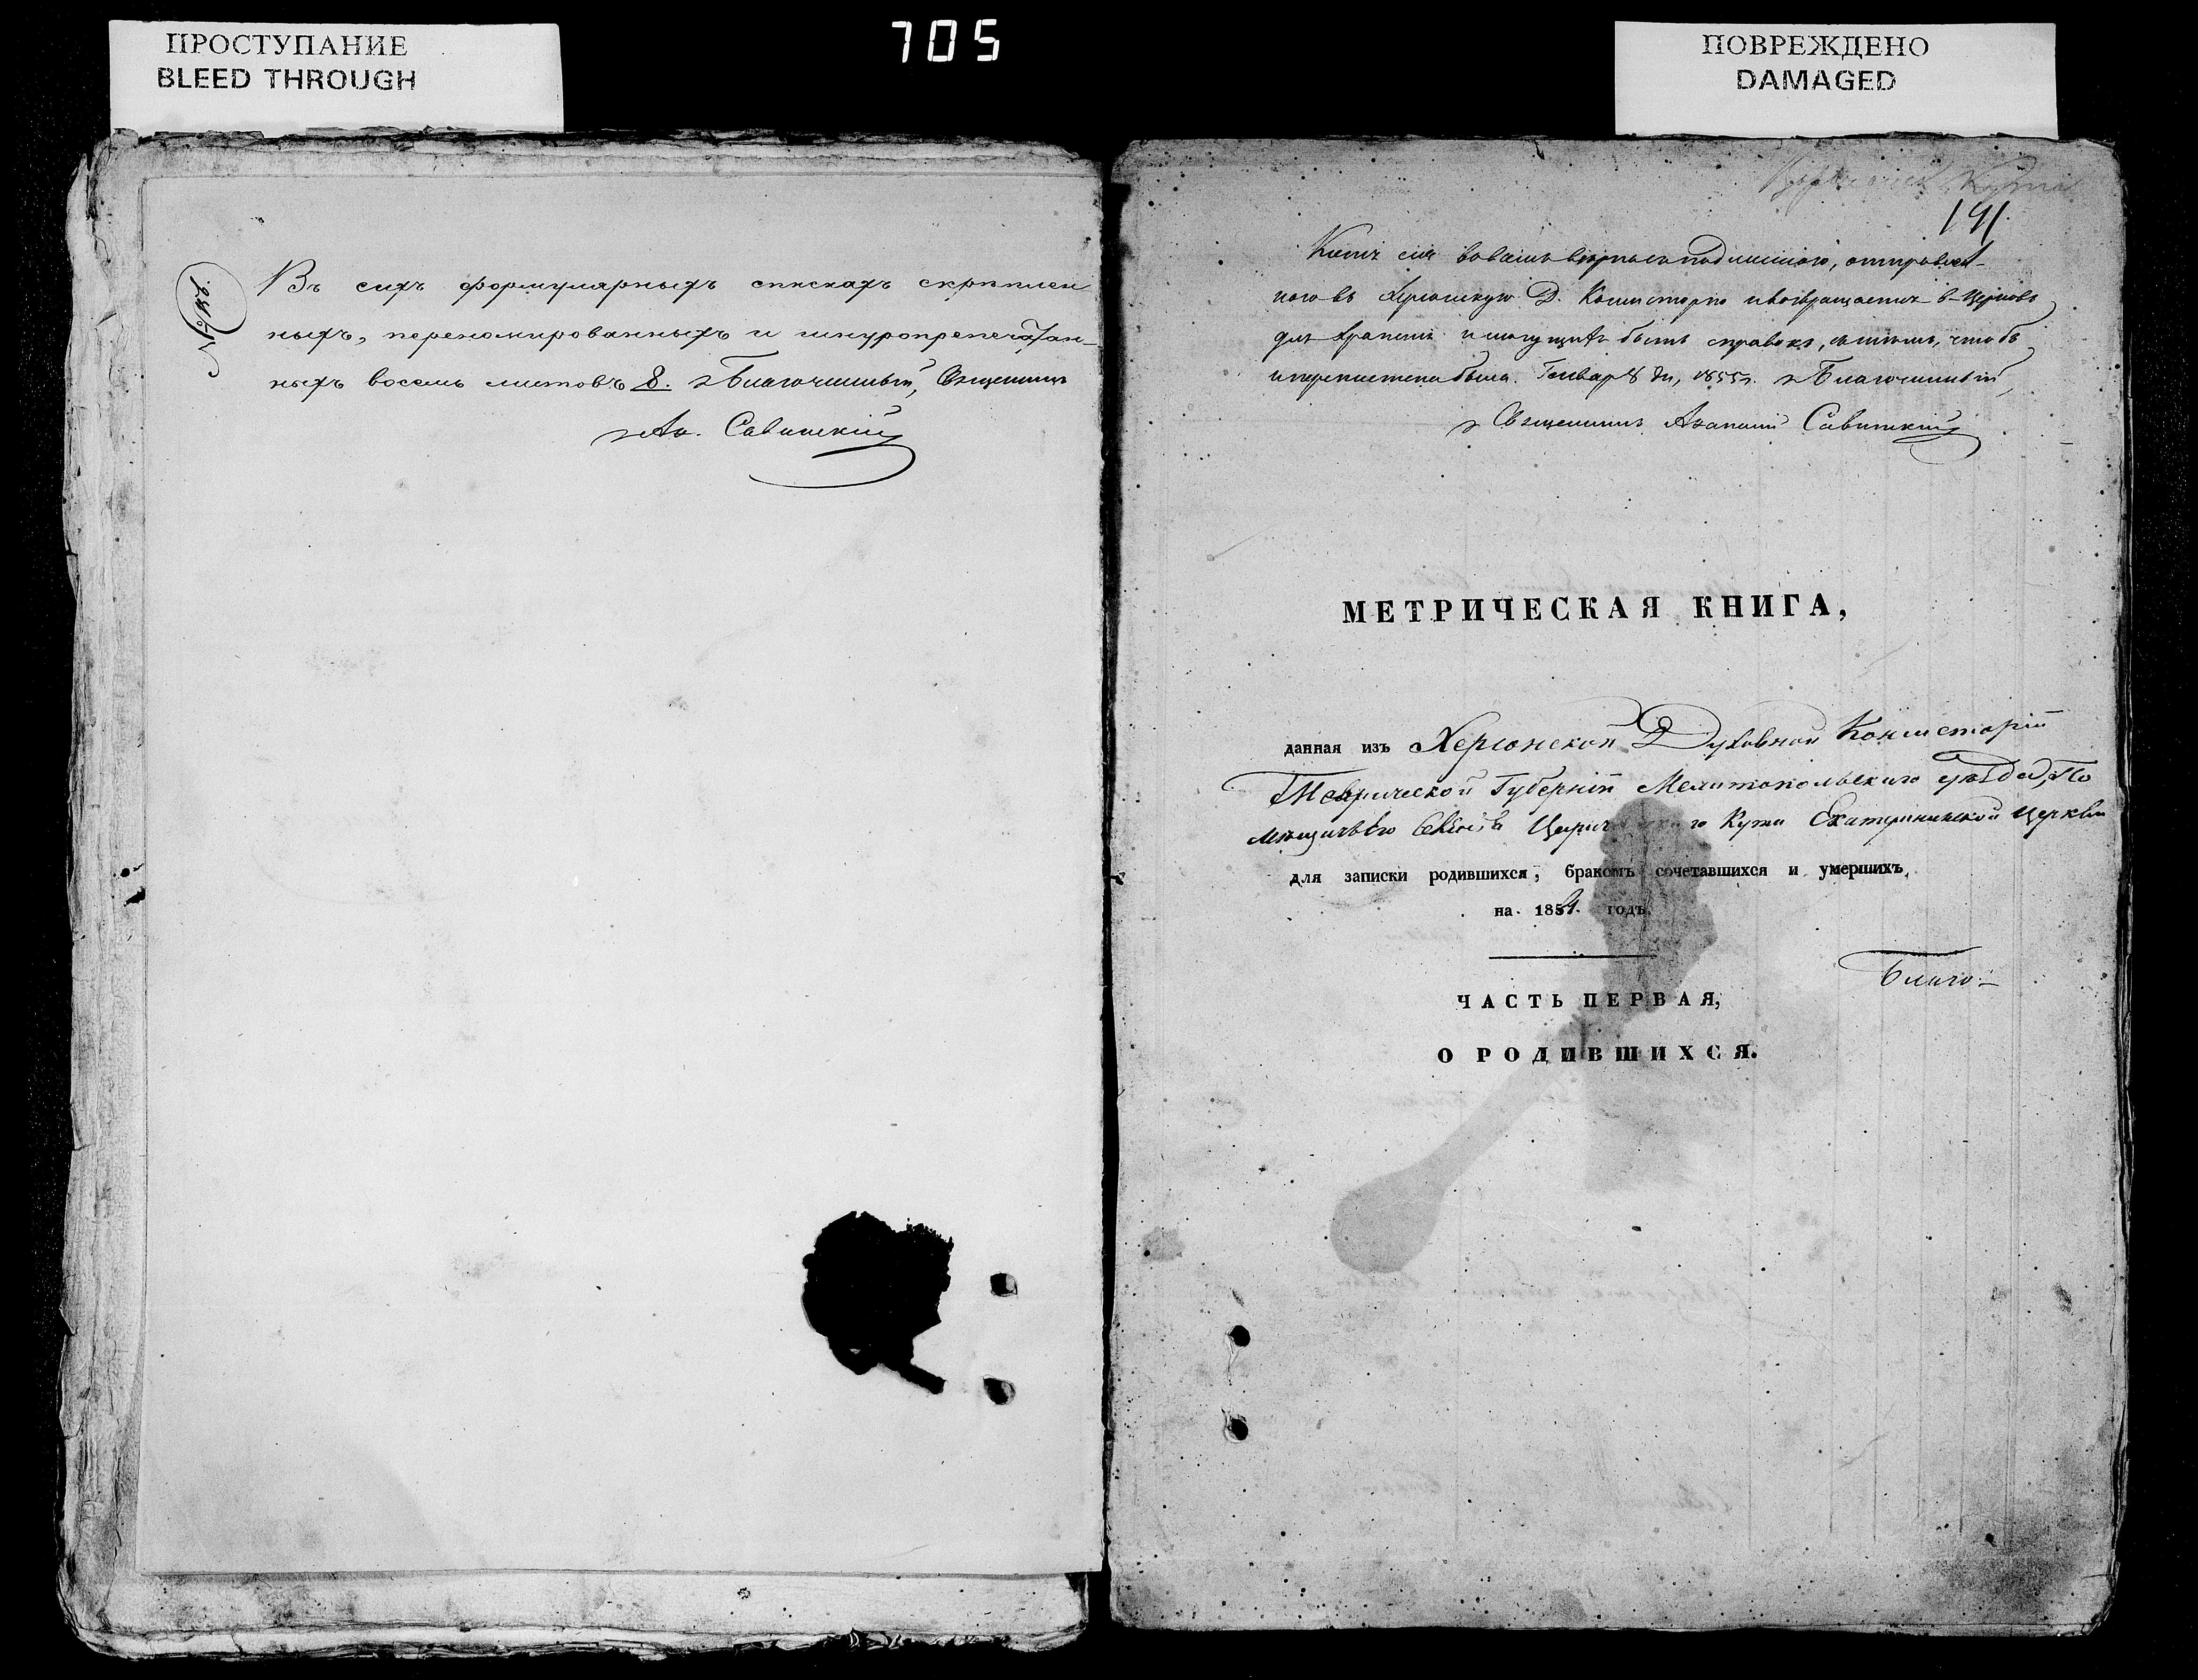 ПРОСТУПАНИЕ
BLEED THROUGH
705
ПОВРЕЖДЕНО
DAMAGED
Въ сихъ формулярныхъ спискахъ скрѣплен
ныхъ, переномированныхъ и шнуропрепечатан-
ныхъ восемь листовъ 8. Благочинный, Священникъ
Ав. Савицкій
191.
Копія сія во всемъ вѣрна съ подлинною, отправлен-
ною въ Херсонскую Д. Консисторію и возвращается в Церковь
для храненія и могущихъ быть справокъ, съ тѣмъ, чтобъ
и переплетена была. Генвар 8 дн, 1855 г. Благочинный,
Священникъ Савицкій
МЕТРИЧЕСКАЯ КНИГА,
данная изъ Херсонской Духовной Консисторіи
Таврической Губерніи Мелитопольскаго уѣзда, По
мѣщичьяго Кута Екатерининской Церкви
для записки родившихся, бракомъ сочетавшихся и умершихъ,
на 1854. годъ.
Благо-
ЧАСТЬ ПЕРВАЯ,
О РОДИВШИХСЯ.